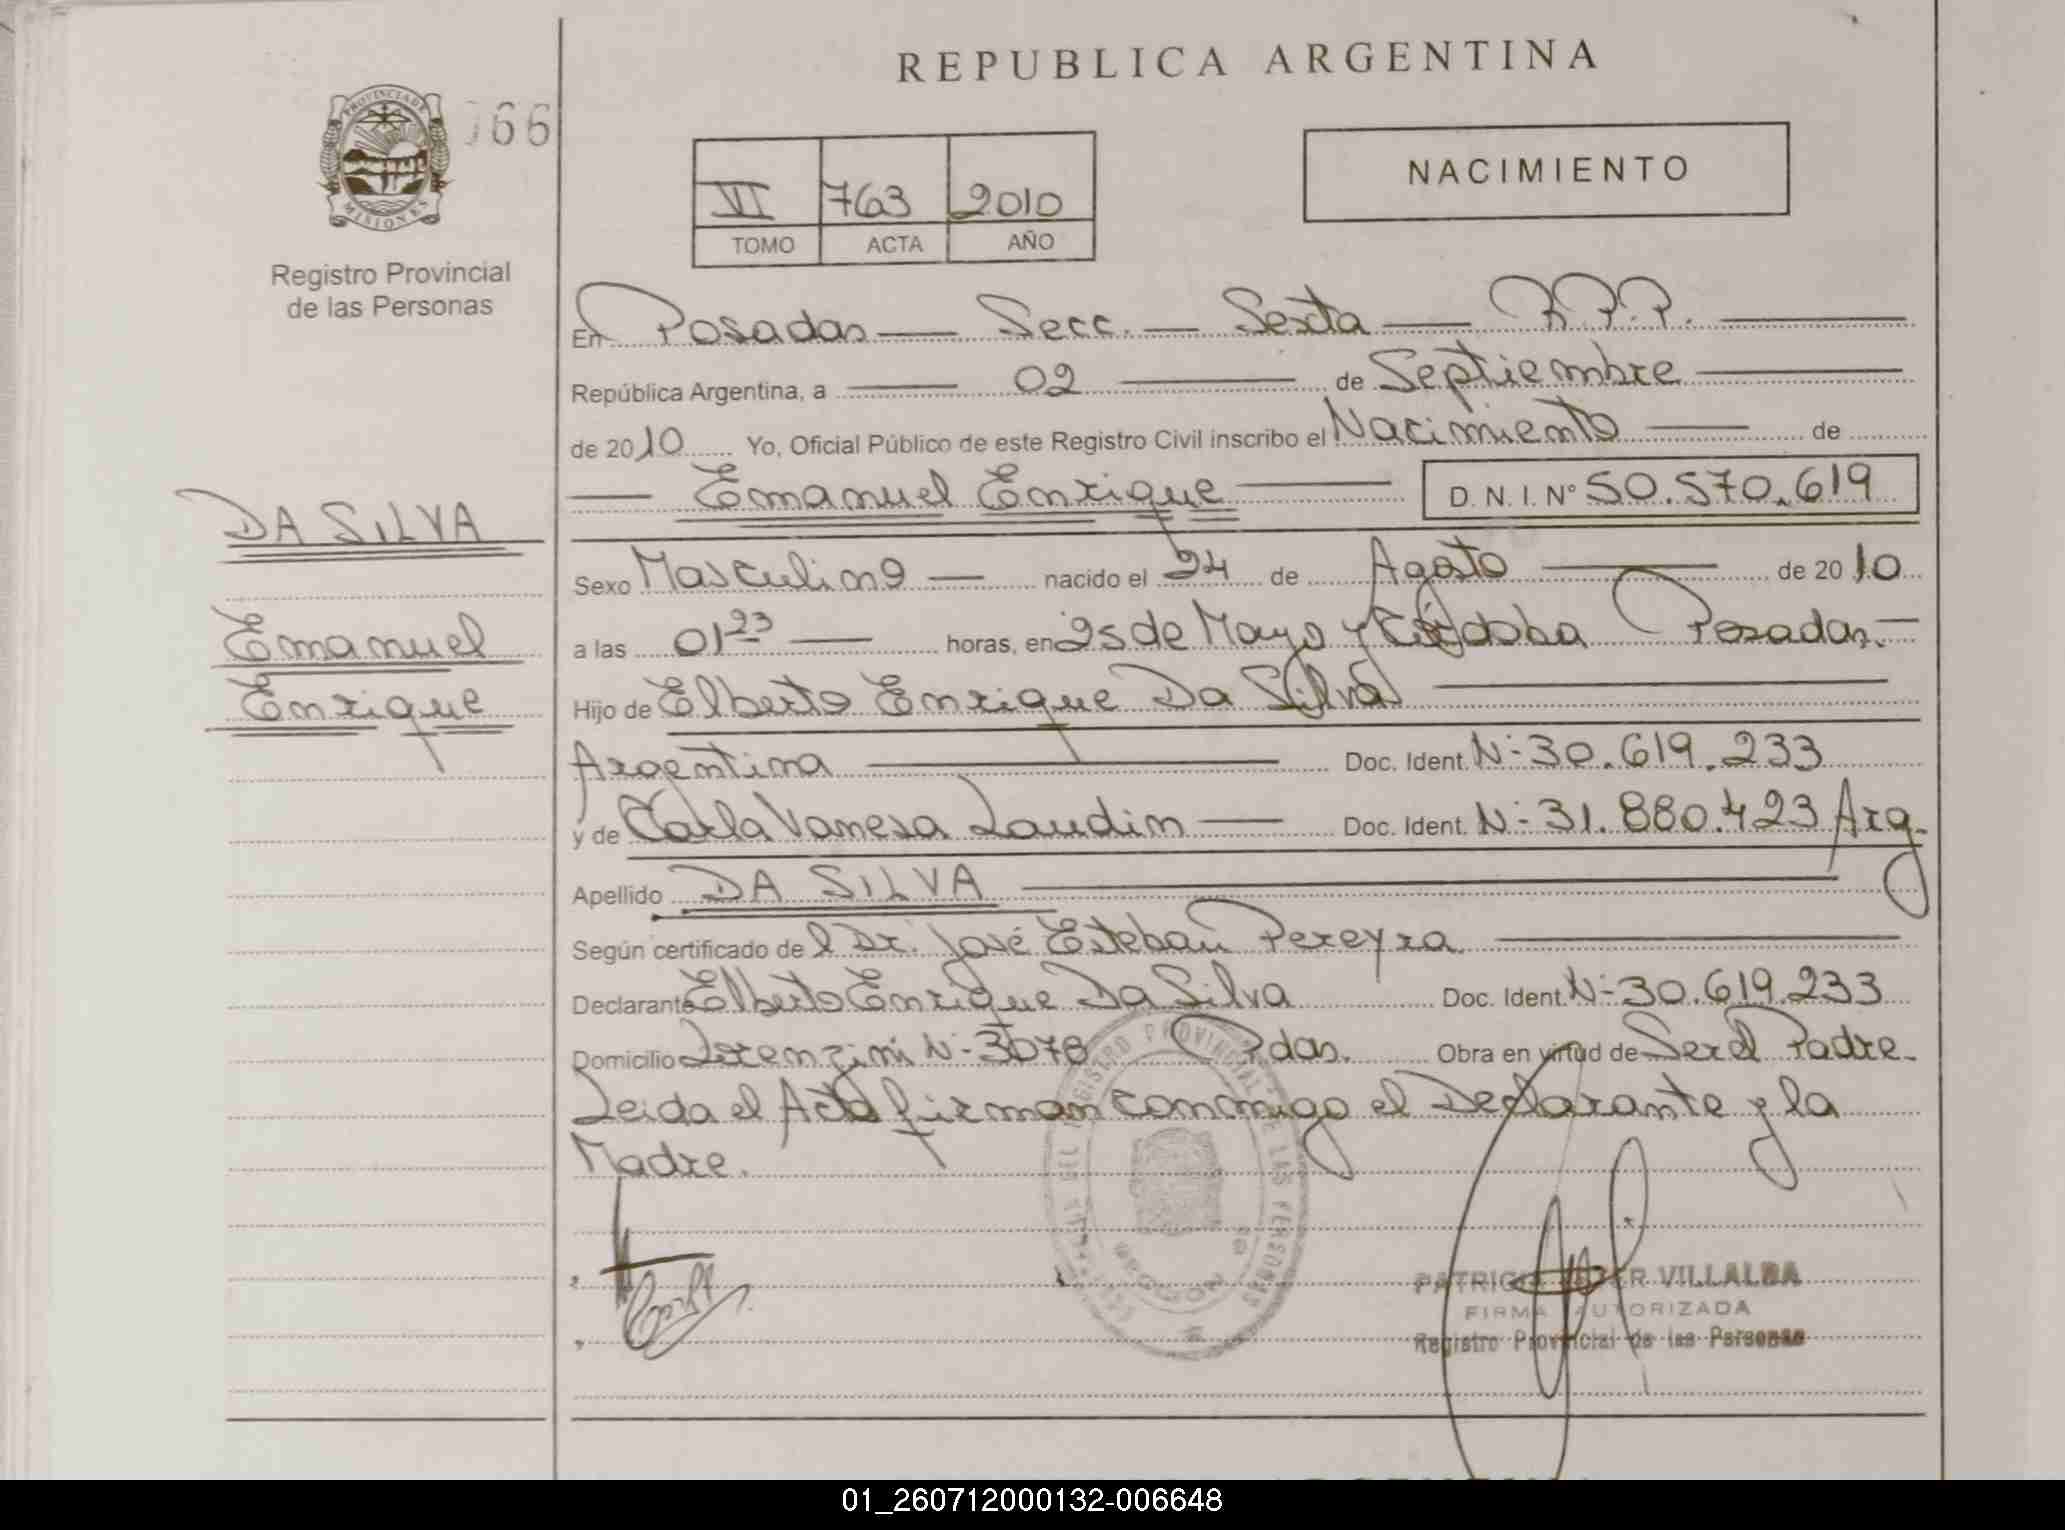 REPUBLICA ARGENTINA
PROVINCIA DE
MISIONES
66
Registro Provincial
de las Personas
VI 763 2010
TOMO ACTA AÑO
NACIMIENTO
En Posadas — Secc. — Sexta — R.P.P. —
República Argentina, a — 02 — de Septiembre —
de 2010 Yo, Oficial Público de este Registro Civil inscribo el Nacimiento — de
— Emanuel Enrique — D. N. I. Nº 50.570.619
DA SILVA
Emanuel
Enrique
Sexo Masculino — nacido el 24 de Agosto — de 2010
a las 01 23 — horas, en 25 de Mayo y Córdoba Posadas. —
Hijo de Elberto Enrique Da Silva —
Argentina — Doc. Ident. N- 30.619.233
y de Carla Vanesa Laudin — Doc. Ident. N- 31.880.423 Arg.
Apellido DA SILVA —
Según certificado de l Dr. José Esteban Pereyra —
Declarante Elberto Enrique Da Silva Doc. Ident. N- 30.619.233
Domicilio Lorenzini N- 3078 Pdas. Obra en virtud de Ser el Padre.
Leida el Acta firman conmigo el Declarante y la
Madre.
REGISTRO PROVINCIAL DE LAS PERSONAS
PATRICIA VILLALBA
FIRMA AUTORIZADA
Registro Provincial de las Personas
01_260712000132-006648